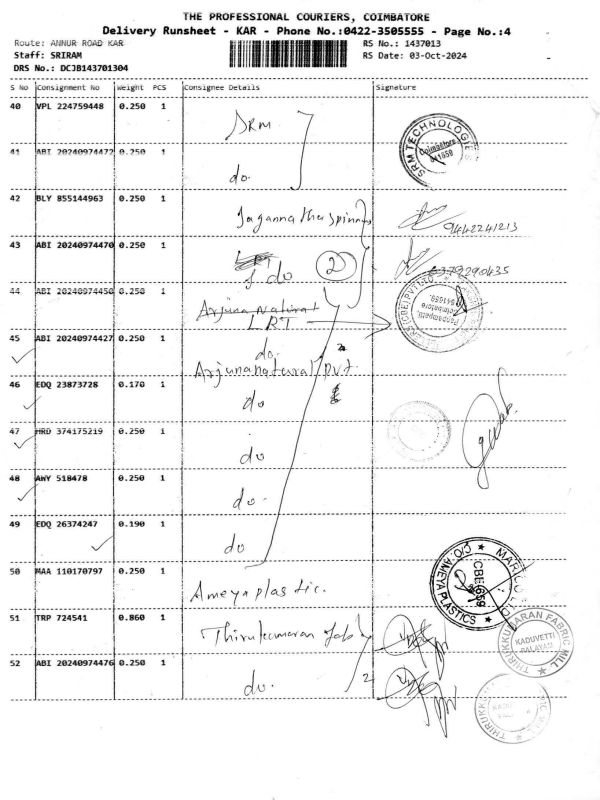 THE PROFESSIONAL COURIERS, COIMBATORE
Delivery Runsheet - KAR - Phone No.:0422-3505555 - Page No.:4
Route: ANNUR ROAD KAR
RS No.: 1437013
Staff: SRIRAM
RS Date: 03-Oct-2024
DRS No.: DCJB143701304
S No Consignment No Weight PCS Consignee Details Signature
40 VPL 224759448 0.250 1 SRM
SRM TECHNOLOGIE Coimbatore 641659
41 ABI 20240974472 0.250 1 do.
42 BLY 855144963 0.250 1 Jagannatha spinners
9442241213
43 ABI 20240974470 0.250 1 do 2
44 ABI 20240974450 0.250 1 Arjuna Natural
LRT
Pappampatti, Coimbatore 641659.
45 ABI 20240974427 0.250 1 do.
Arjunanatural pvt.
46 EDQ 23873728 0.170 1 do
47 HRD 374175219 0.250 1 do
48 AWY 518478 0.250 1 do.
49 EDQ 26374247 0.190 1 do
50 MAA 110170797 0.250 1 Ameya plastic.
MARICO LTD C/O. AMEYA PLASTICS CBE-659
51 TRP 724541 0.860 1 Thirukumaran fab
THIRUKKUMARAN FABRIC MILL KADUVETTI PALAYAM
52 ABI 20240974476 0.250 1 do. 2